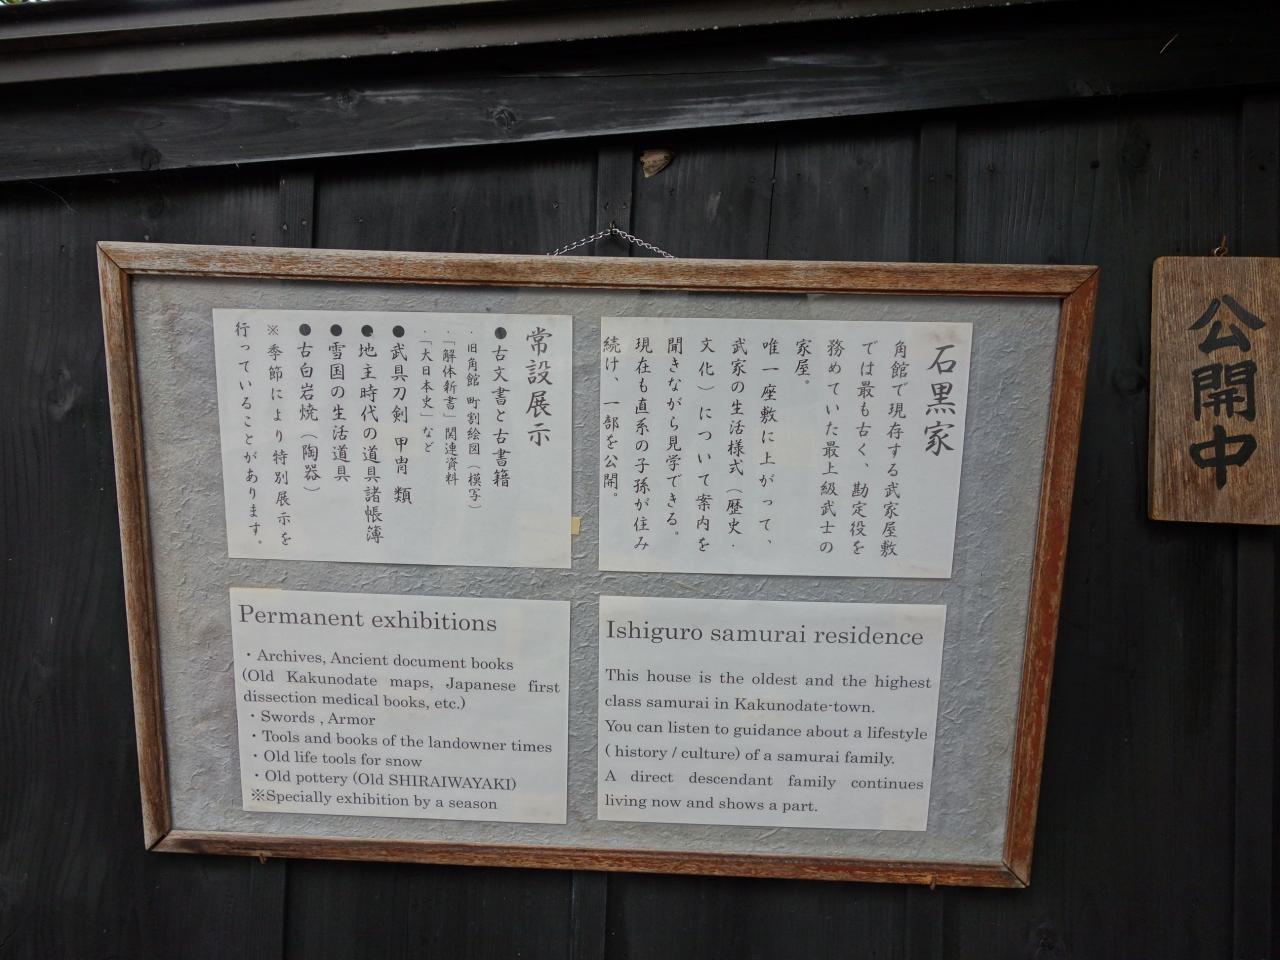 石黒家
角館で現存する武家屋敷
では最も古く、勘定役を
務めていた最上級武士の
家屋。
唯一座敷に上がって、
武家の生活様式（歴史・
文化）について案内を
聞きながら見学できる。
現在も直系の子孫が住み
続け、一部を公開。
常設展示
●古文書と古書籍
・旧角館 町割絵図（模写）
・「解体新書」関連資料
・「大日本史」など
●武具刀剣 甲冑 類
●地主時代の道具諸帳簿
●雪国の生活道具
●古白岩焼（陶器）
※季節により特別展示を
行っていることがあります。
Permanent exhibitions
・Archives, Ancient document books
(Old Kakunodate maps, Japanese first
dissection medical books, etc.)
・Swords , Armor
・Tools and books of the landowner times
・Old life tools for snow
・Old pottery (Old SHIRAIWAYAKI)
※Specially exhibition by a season
Ishiguro samurai residence
This house is the oldest and the highest
class samurai in Kakunodate-town.
You can listen to guidance about a lifestyle
( history / culture) of a samurai family.
A direct descendant family continues
living now and shows a part.
公開中